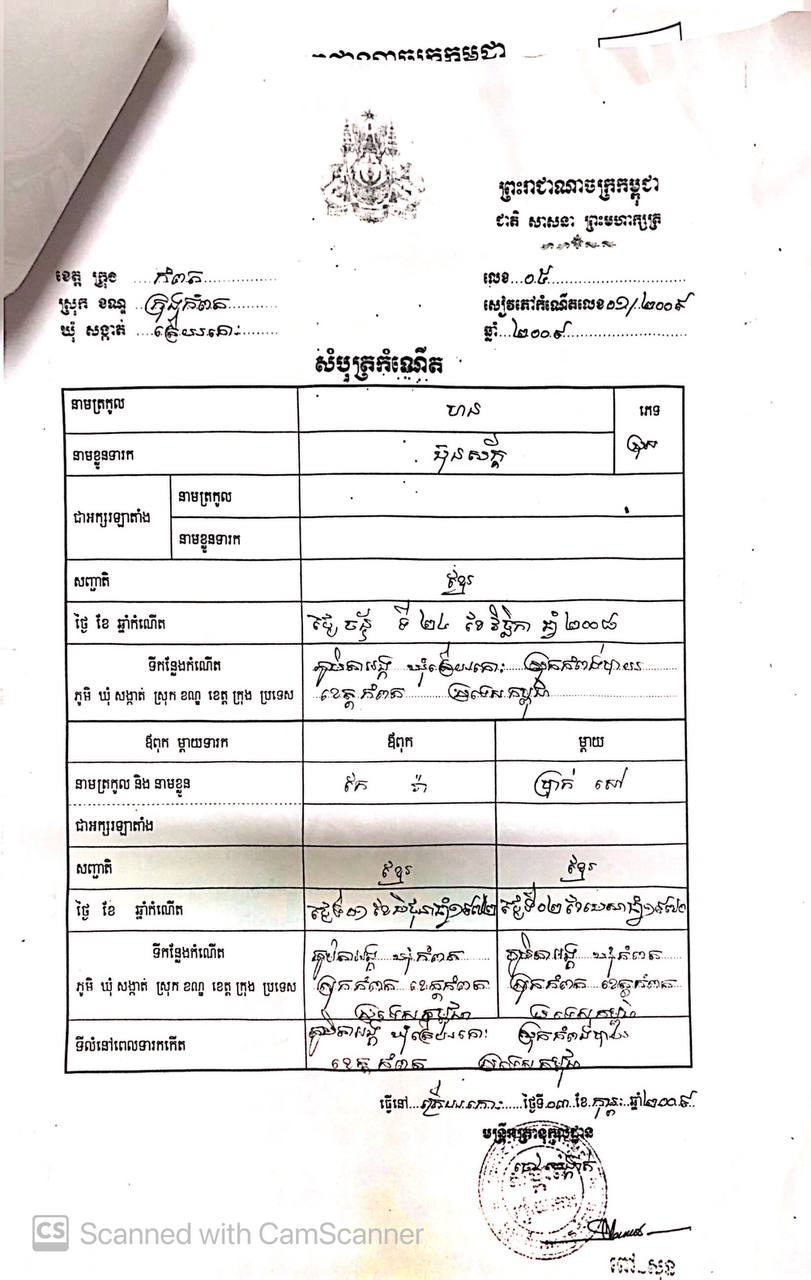 ព្រះរាជាណាចក្រកម្ពុជា
ជាតិ សាសនា ព្រះមហាក្សត្រ
ខេត្ត ក្រុង កំពត
លេខ ០៥
ស្រុក ខណ្ឌ ក្រុងកំពត
សៀវភៅកំណើតលេខ ០១/២០០៩
ឃុំ សង្កាត់ ត្រើយកោះ
ឆ្នាំ ២០០៩
សំបុត្រកំណើត
នាមត្រកូល ហន ភេទ
នាមខ្លួនទារក ប៊ុនសក្តិ ប្រុស
ជាអក្សរឡាតាំង នាមត្រកូល
នាមខ្លួនទារក
សញ្ជាតិ ខ្មែរ
ថ្ងៃ ខែ ឆ្នាំកំណើត ថ្ងៃ ចន្ទ ទី ២៤ ខែ វិច្ឆិកា ឆ្នាំ ២០០៨
ទីកន្លែងកំណើត ភូមិតាអង្គ ឃុំត្រើយកោះ ស្រុកកំពង់បាយ
ភូមិ ឃុំ សង្កាត់ ស្រុក ខណ្ឌ ខេត្ត ក្រុង ប្រទេស ខេត្តកំពត ប្រទេសកម្ពុជា
ឪពុក ម្តាយទារក ឪពុក ម្តាយ
នាមត្រកូល និង នាមខ្លួន ប្រាក់ សៅ
ជាអក្សរឡាតាំង
សញ្ជាតិ ខ្មែរ ខ្មែរ
ថ្ងៃ ខែ ឆ្នាំកំណើត ថ្ងៃទី០១ ខែមិថុនា ឆ្នាំ១៩៧២ ថ្ងៃទី០២ ខែមេសា ឆ្នាំ១៩៧០
ទីកន្លែងកំណើត ភូមិតាអង្គ ឃុំកំពត ភូមិតាអង្គ ឃុំកំពត
ភូមិ ឃុំ សង្កាត់ ស្រុក ខណ្ឌ ខេត្ត ក្រុង ប្រទេស ស្រុកកំពត ខេត្តកំពត ស្រុកកំពត ខេត្តកំពត
ប្រទេសកម្ពុជា ប្រទេសកម្ពុជា
ទីលំនៅពេលទារកកើត ភូមិតាអង្គ ឃុំត្រើយកោះ ស្រុកកំពង់បាយ
ខេត្តកំពត ប្រទេសកម្ពុជា
ធ្វើនៅ ត្រើយកោះ ថ្ងៃទី ០៣ ខែ កុម្ភៈ ឆ្នាំ ២០០៩
មន្ត្រីអត្រានុកូលដ្ឋាន
ចៅសង្កាត់
ពៅ សុន
CS Scanned with CamScanner